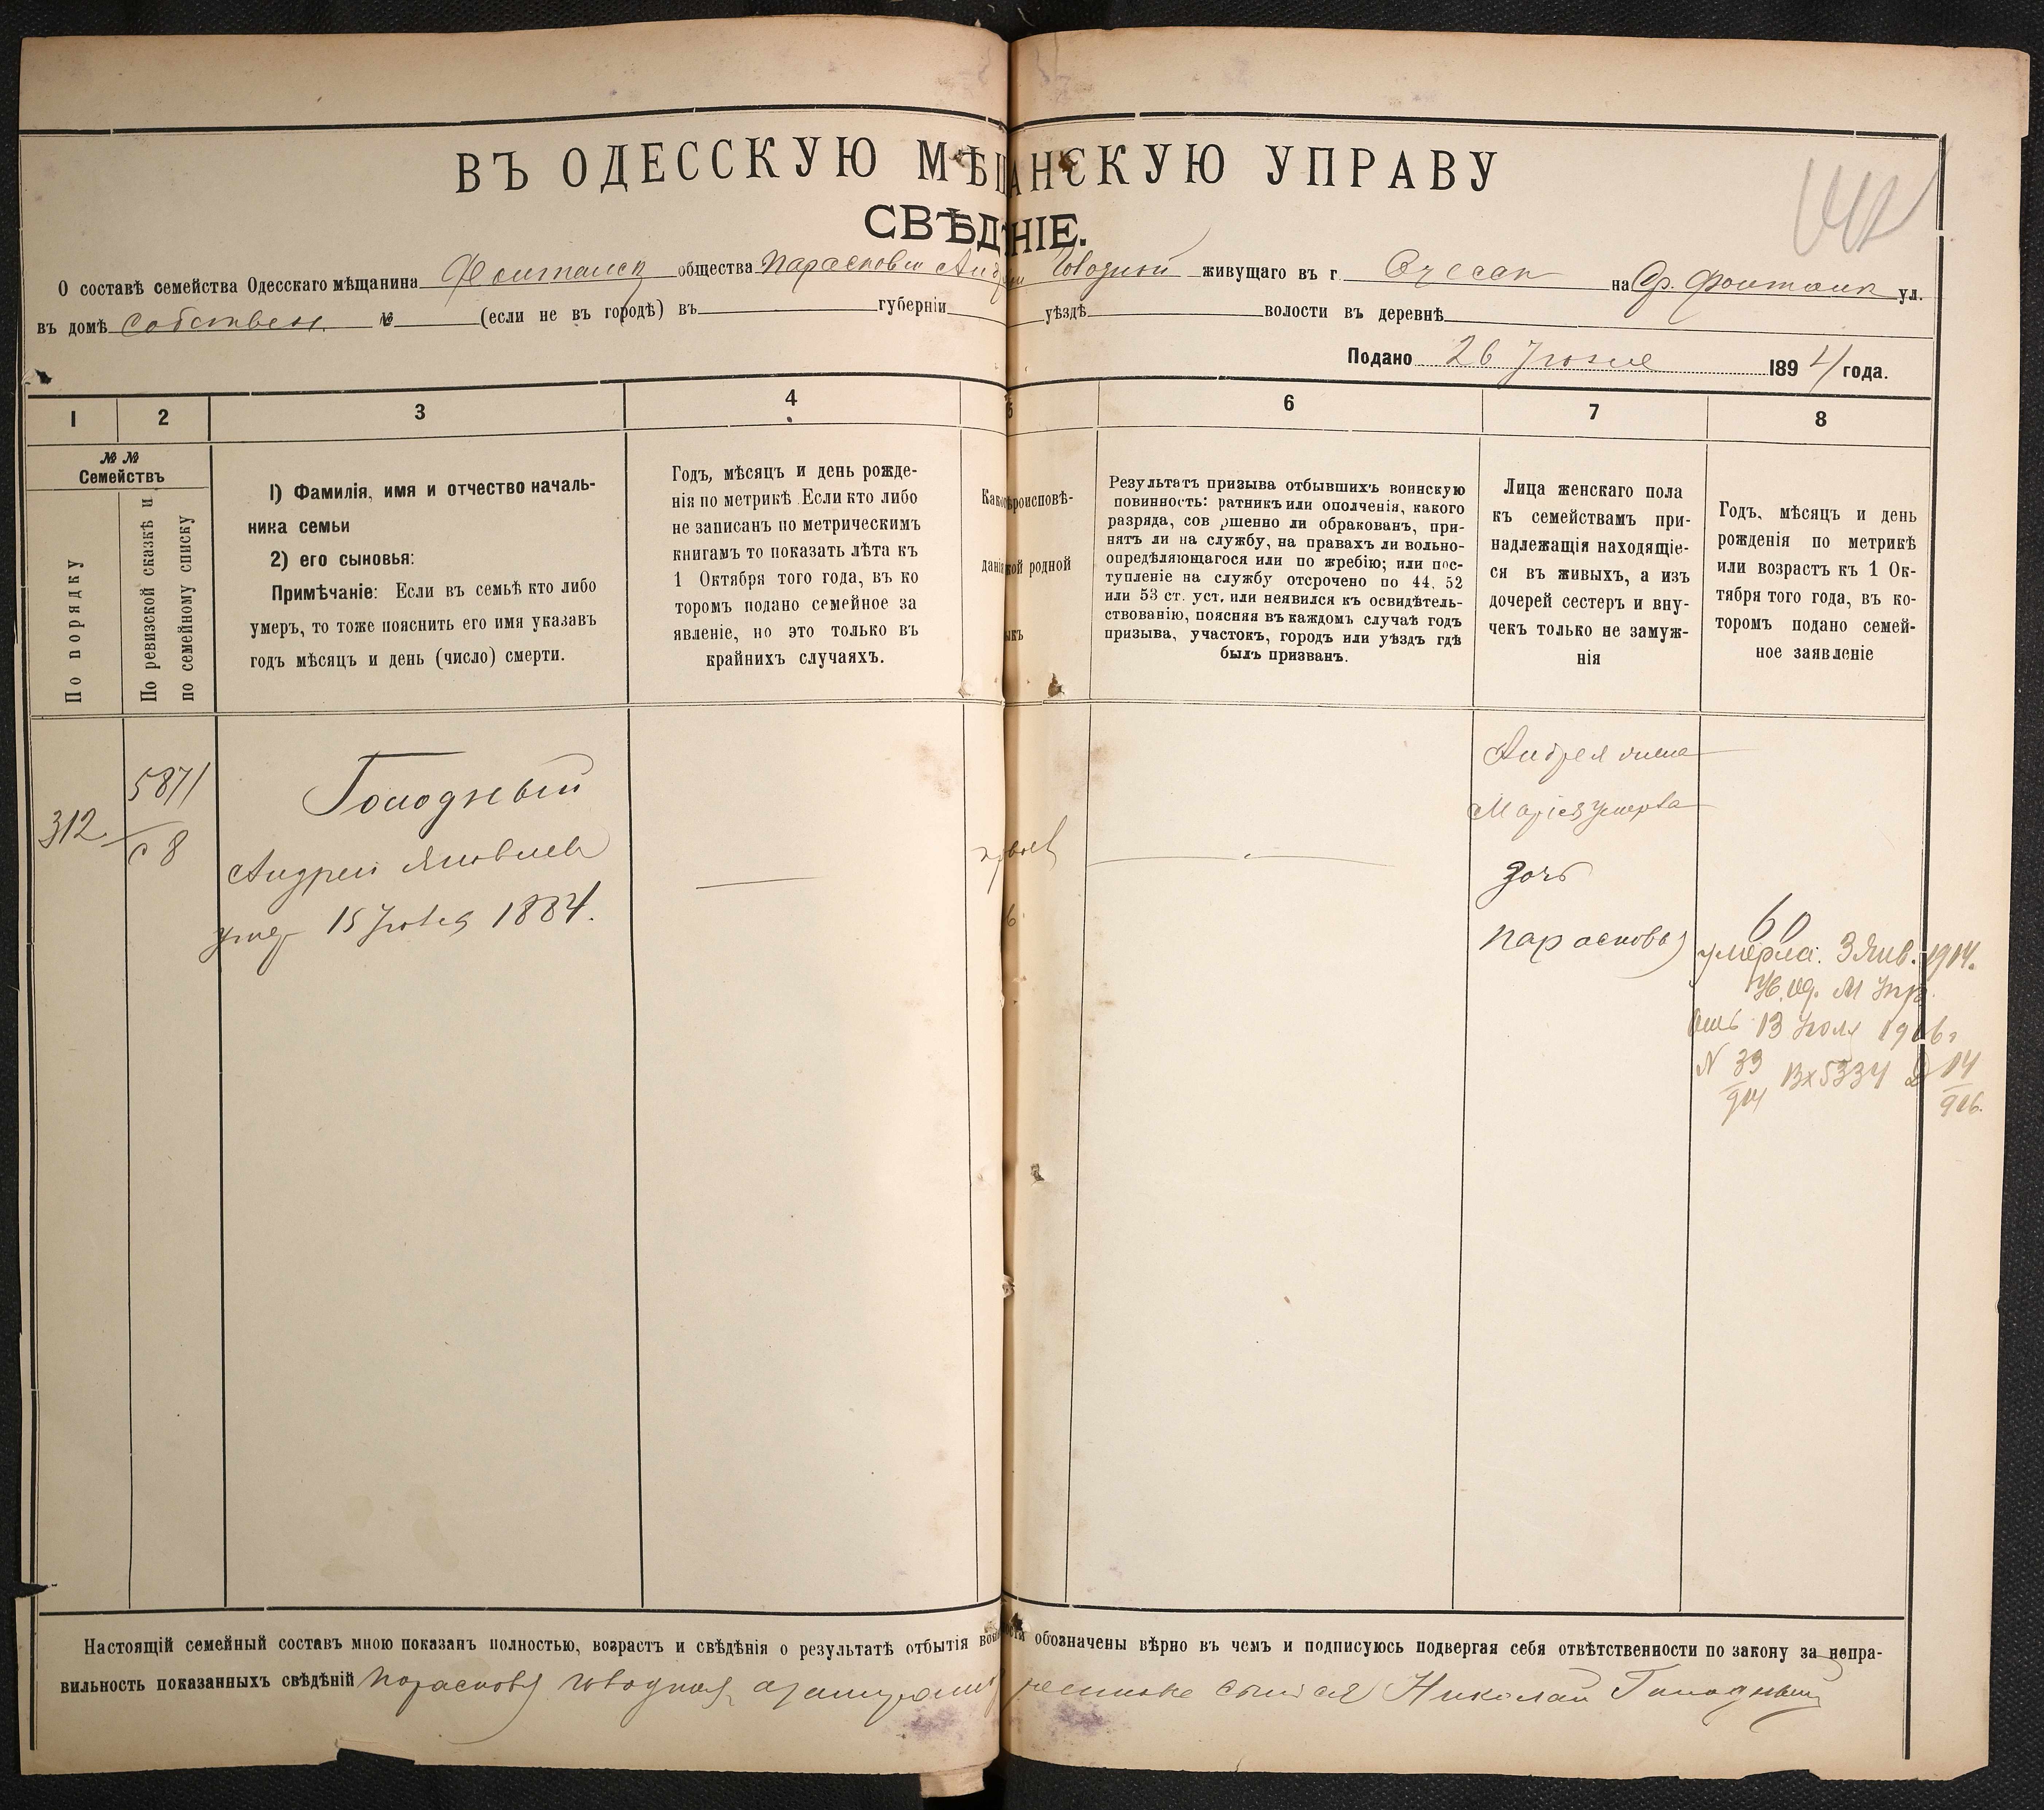 ВЪ ОДЕССКУЮ МѢЩАНСКУЮ УПРАВУ
СВѢДѢНІЕ.
О составѣ семейства Одесскаго мѣщанина Фонтанск общества Параскови Андр Голодной живущаго въ г. Одессе на Ср. Фонтанк ул.
въ домѣ Собствен. № (если не въ городѣ) въ губерніи уѣздѣ волости въ деревнѣ
Подано 26 189 4 года.
1 2 3 4 5 6 7 8
№ №
Семействъ
По порядку
По ревизской сказкѣ и
по семейному списку
1) Фамилія, имя и отчество началь-
ника семьи
2) его сыновья:
Примѣчаніе: Если въ семьѣ кто либо
умеръ, то тоже пояснить его имя указавъ
годъ мѣсяцъ и день (число) смерти.
Годъ, мѣсяцъ и день рожде-
нія по метрикѣ. Если кто либо
не записанъ по метрическимъ
книгамъ то показать лѣта къ
1 Октября того года, въ ко
торомъ подано семейное за
явленіе, но это только въ
крайнихъ случаяхъ.
Како роисповѣ-
данія кой родной
ыкъ
Результатъ призыва отбывшихъ воинскую
повинность: ратникъ или ополченія, какого
разряда, сов ршенно ли обракованъ, при-
нятъ ли на службу, на правахъ ли вольно-
опредѣляющагося или по жребію; или пос-
тупленіе на службу отсрочено по 44, 52
или 53 ст. уст. или неявился къ освидѣтель-
ствованію, поясняя въ каждомъ случаѣ годъ
призыва, участокъ, городъ или уѣздъ гдѣ
былъ призванъ.
Лица женскаго пола
къ семействамъ при-
надлежащія находящіе-
ся въ живыхъ, а изъ
дочерей сестеръ и вну-
чекъ только не замуж-
нія
Годъ, мѣсяцъ и день
рожденія по метрикѣ
или возрастъ къ 1 Ок-
тября того года, въ ко-
торомъ подано семей-
ное заявленіе
312
5871
с 8
Голодный
Андрей Яковлев
умер 15 1884.
Андрея жена
Марія умерла
дочь
Парасковья
60
умерла. 3 Янв. 1914.
Од. М Упр.
13 1916 г
N 39
914
Вх 5334
14
916.
Настоящій семейный составъ мною показанъ полностью, возрастъ и свѣдѣнія о результатѣ отбытія вои ости обозначены вѣрно въ чемъ и подписуюсь подвергая себя отвѣтственности по закону за непра-
вильность показанныхъ свѣдѣній Парасковя Голодная Николай Голодный